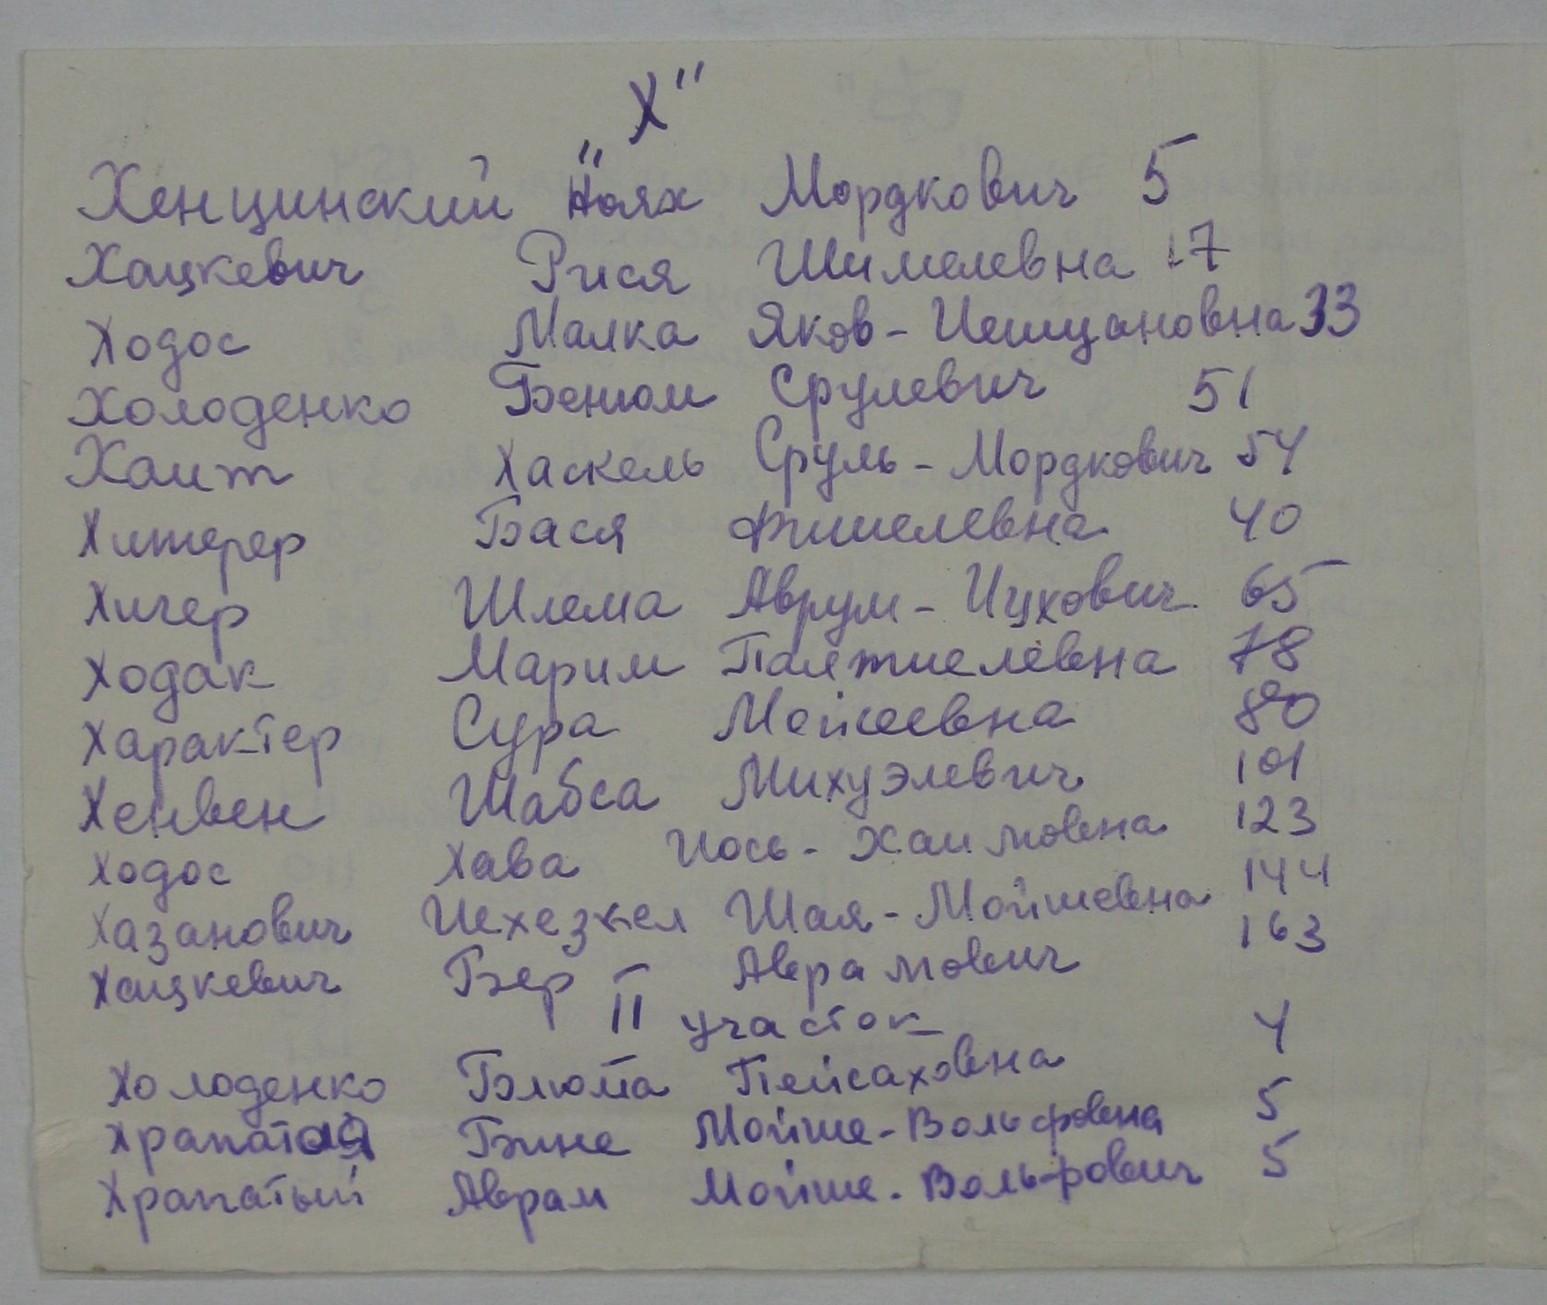 „Х"
Хенцинский Ноях Мордкович 5
Хацкевич Рися Шимелевна 17
Ходос Малка Яков-
Холоденко Бенюм Срулевич 51
Хаит Хаскель Сруль-Мордкович 54
Хитерер Бася Фишелевна 40
Хигер Шлема Аврум-Ицхович 65
Ходак Марим 78
Характер Сура Мойсеевна 80
Хенвен Шабса Михуэлевич 101
Ходос Хава Иось-Хаимовна 123
Хазанович Иехезкел Шая-Мойшевна 144
Хацкевич Бер Аврамович 163
II участок
Холоденко Блюма Пейсаховна 4
Храпатая Бине Мойше-Вольфовна 5
Храпатый Аврам Мойше-Вольфович 5